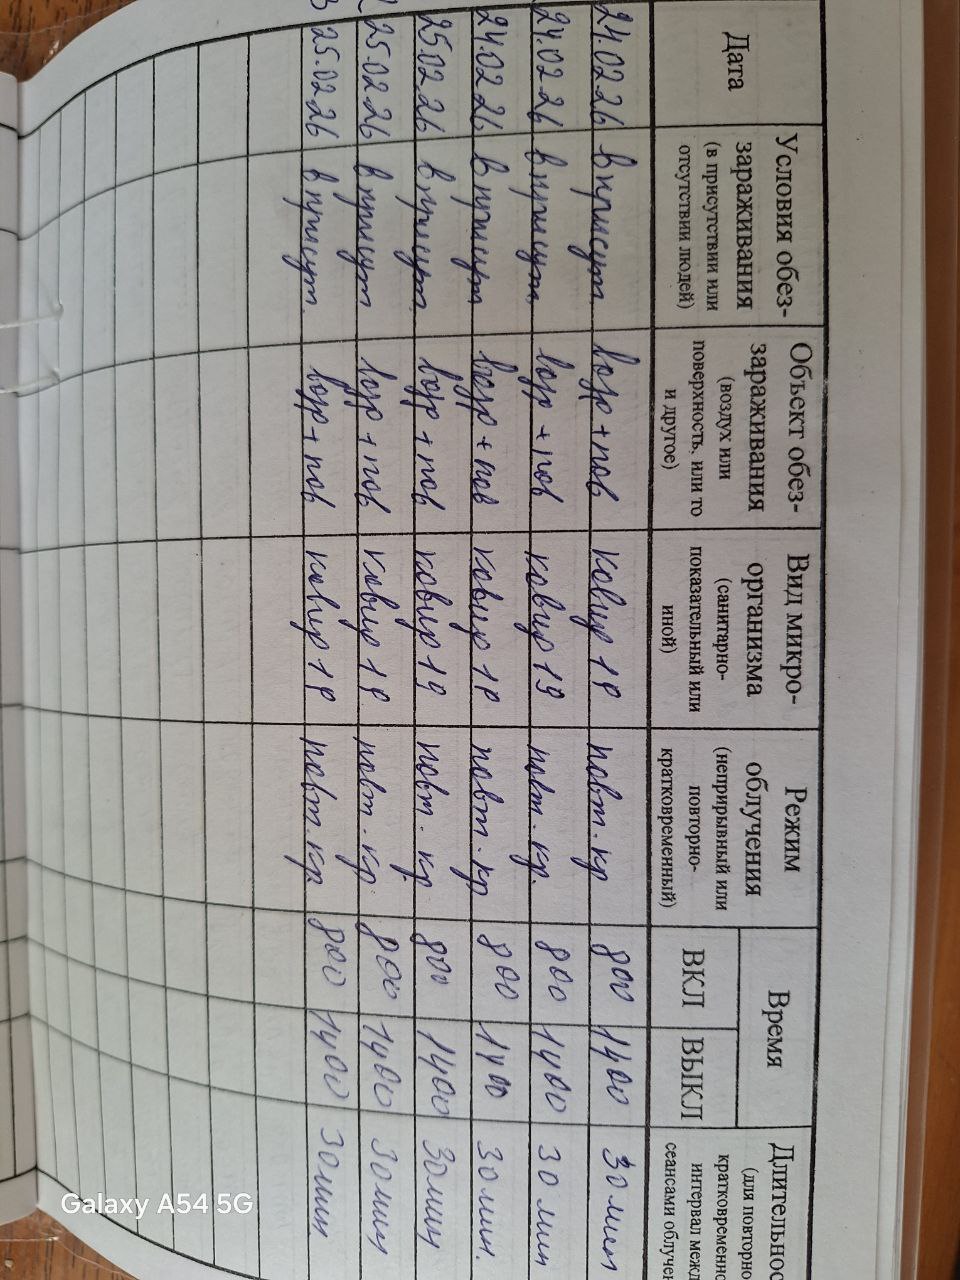 Дата
Условия обез-
зараживания
(в присутствии или
отсутствии людей)
Объект обез-
зараживания
(воздух или
поверхность, или то
и другое)
Вид микро-
организма
(санитарно-
показательный или
иной)
Режим
облучения
(неприрывный или
повторно-
кратковременный)
Время
ВКЛ
ВЫКЛ
Длительнос
(для повторно
кратковременно
интервал межд
сеансами облучен
24.02.26 в присут возд+пов ковид 19 повт.кр 800 1400 30 мин
24.02.26 в присут. возд+пов ковид 19 повт.кр. 800 1400 30 мин
24.02.26 в присут возд+пов ковид 19 повт.кр 800 1400 30 мин.
25.02.26 в присут. возд+пов ковид 19 повт.кр 800 1400 30 мин
25.02.26 в присут возд+пов ковид 19 повт.кр. 800 1400 30 мин
25.02.26 в присут. возд+пов ковид 19 повт.кр 800 1400 30 мин
Galaxy A54 5G